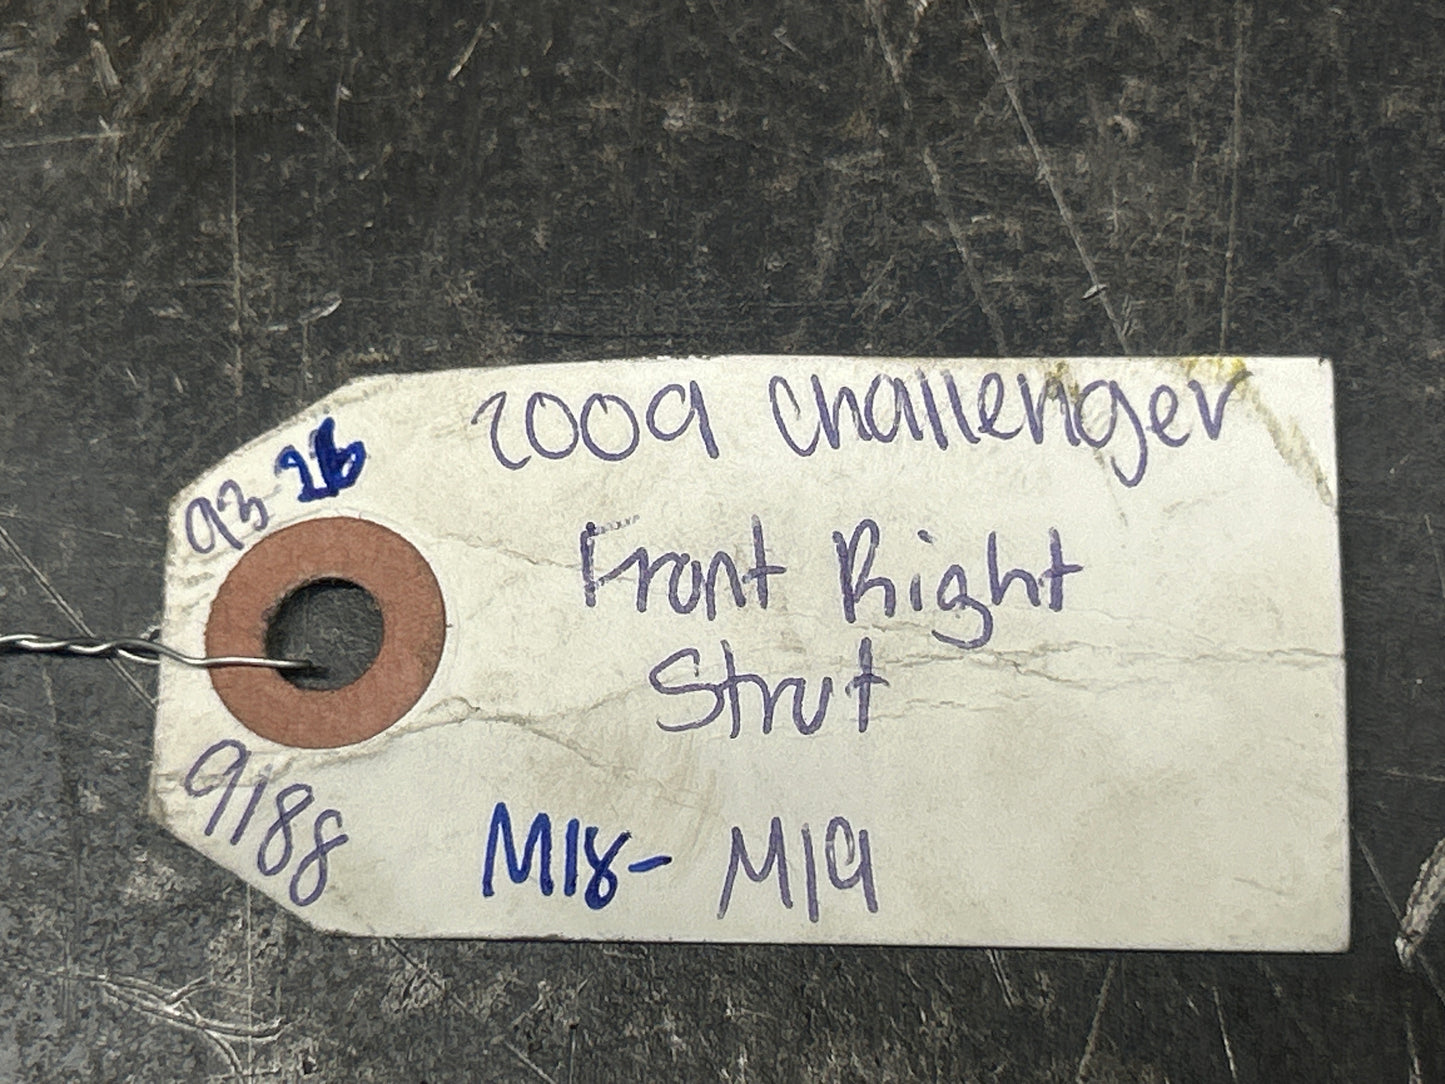 2009 Challenger
93-
Front Right
Strut
9188
M18- M19